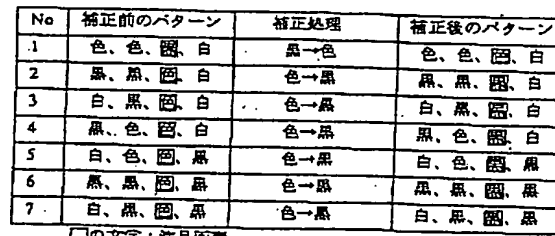 No 補正前のパターン 補正処理 補正後のパターン
1 色、色、黒、白 黒→色 色、色、色、白
2 黒、黒、色、白 色→黒 黒、黒、黒、白
3 白、黒、色、白 色→黒 白、黒、黒、白
4 黒、色、色、白 色→黒 黒、色、黒、白
5 白、色、色、黒 色→黒 白、色、黒、黒
6 黒、黒、色、黒 色→黒 黒、黒、黒、黒
7 白、黒、色、黒 色→黒 白、黒、黒、黒
□の文字：